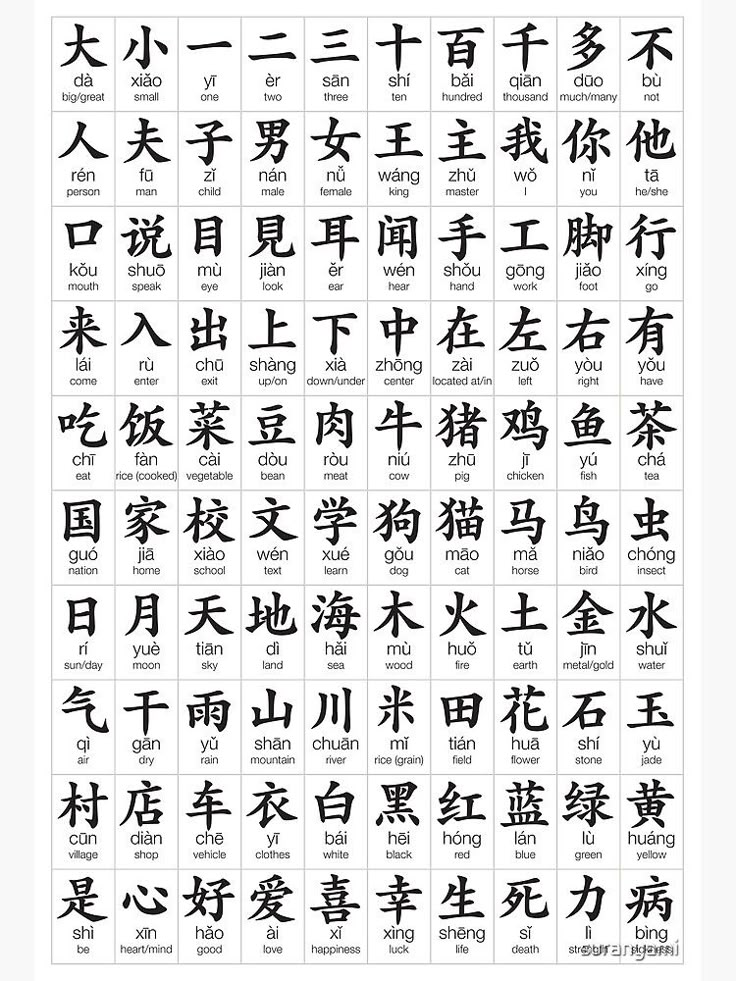 大 小 一 二 三 十 百 千 多 不
dà xiǎo yī èr sān shí bǎi qiān duō bù
big/great small one two three ten hundred thousand much/many not
人 夫 子 男 女 王 主 我 你 他
rén fū zǐ nán nǚ wáng zhǔ wǒ nǐ tā
person man child male female king master I you he/she
口 说 目 見 耳 闻 手 工 脚 行
kǒu shuō mù jiàn ěr wén shǒu gōng jiǎo xíng
mouth speak eye look ear hear hand work foot go
来 入 出 上 下 中 在 左 右 有
lái rù chū shàng xià zhōng zài zuǒ yòu yǒu
come enter exit up/on down/under center located at/in left right have
吃 饭 菜 豆 肉 牛 猪 鸡 鱼 茶
chī fàn cài dòu ròu niú zhū jī yú chá
eat rice (cooked) vegetable bean meat cow pig chicken fish tea
国 家 校 文 学 狗 猫 马 鸟 虫
guó jiā xiào wén xué gǒu māo mǎ niǎo chóng
nation home school text learn dog cat horse bird insect
日 月 天 地 海 木 火 土 金 水
rí yuè tiān dì hǎi mù huǒ tǔ jīn shuǐ
sun/day moon sky land sea wood fire earth metal/gold water
气 干 雨 山 川 米 田 花 石 玉
qì gān yǔ shān chuān mǐ tián huā shí yù
air dry rain mountain river rice (grain) field flower stone jade
村 店 车 衣 白 黑 红 蓝 绿 黄
cūn diàn chē yī bái hēi hóng lán lù huáng
village shop vehicle clothes white black red blue green yellow
是 心 好 爱 喜 幸 生 死 力 病
shì xīn hǎo ài xǐ xìng shēng sǐ lì bìng
be heart/mind good love happiness luck life death strength
surangami